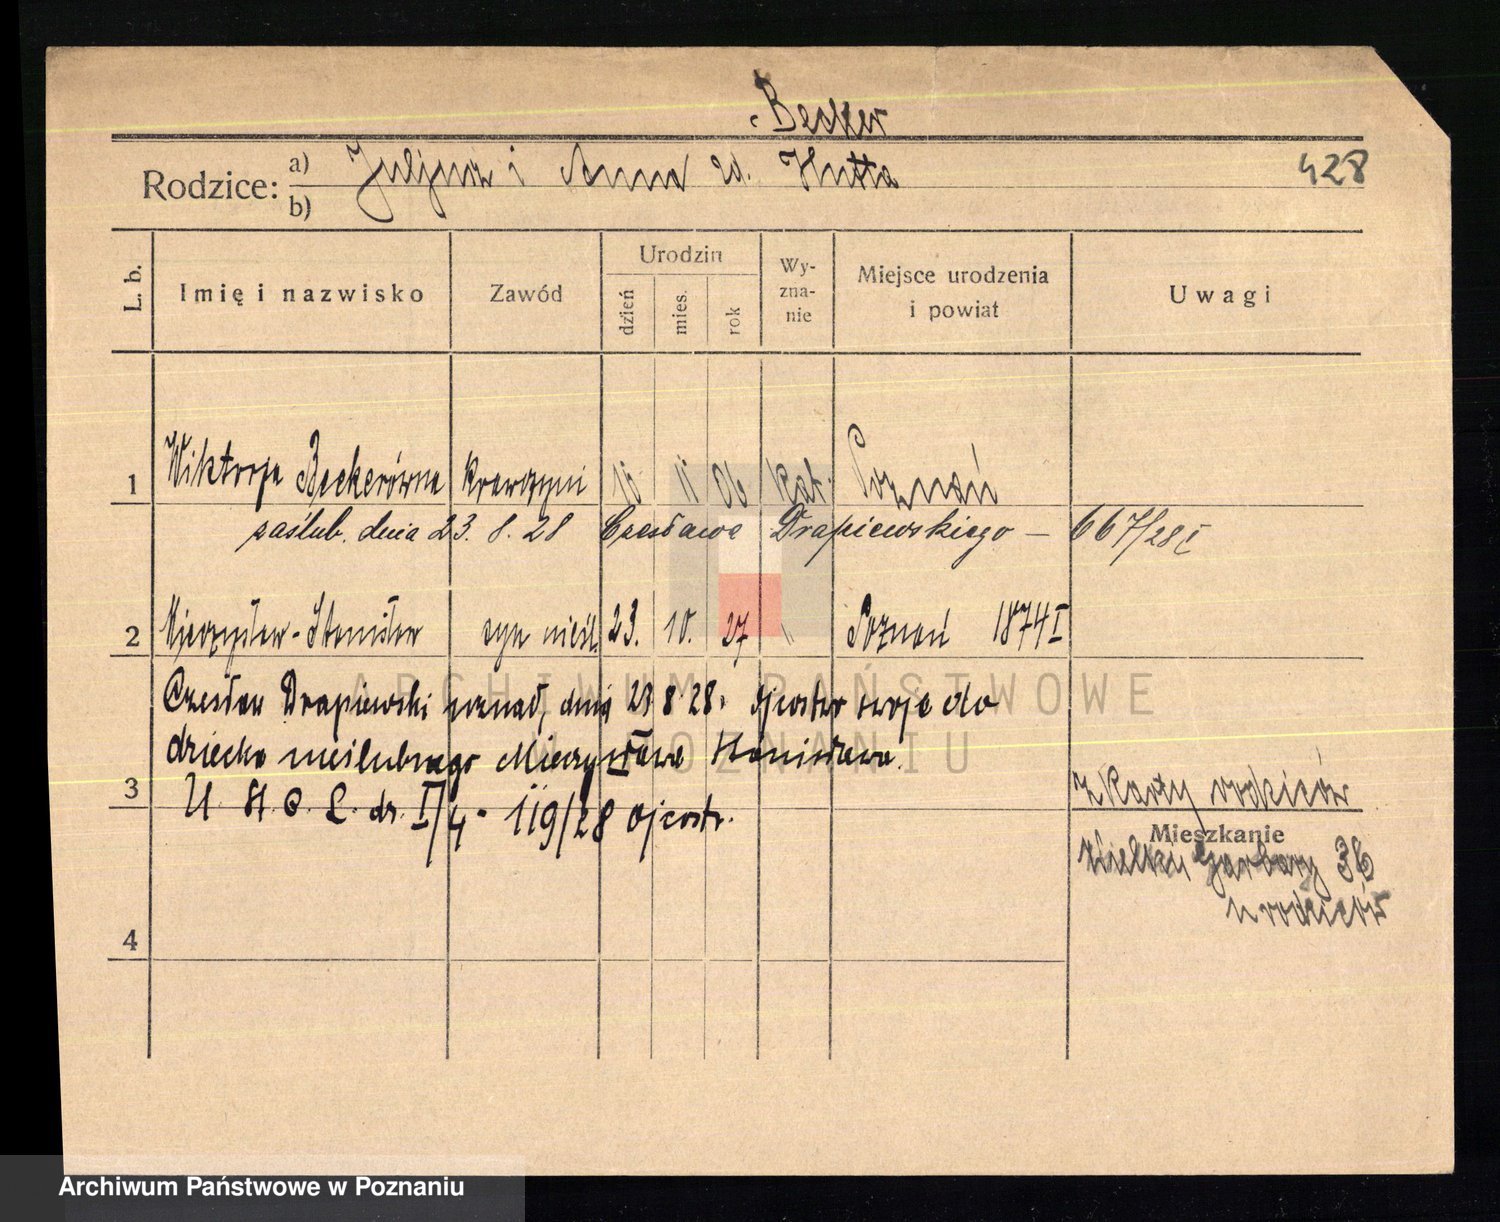 Becker
Rodzice: a) Juljusz i Anna zd. Hutta 428
b)
L. b. Imię i nazwisko Zawód Urodzin dzień mies. rok Wy-zna-nie Miejsce urodzenia i powiat Uwagi
1 Wiktorja Beckerówna krawczyni 10 11 06 kat. Poznań
zaślub. dnia 23. 8. 28 Czesława Drapiewskiego — 667/28 I
2 Mieczysław-Stanisław syn nieśl. 23. 10. 27 " Poznań 1874 I
Czesław Drapiewski uznał, dnia 23 8 28. ojcostwo swoje do
dziecka nieślubnego Mieczysława Stanisława.
3 U. St. C. L. dz. I/4 - 119/28 ojcostw.
z karty rodziców
Mieszkanie
Wielkie Garbary 36
u rodziców
4
ARCHIWUM PAŃSTWOWE
W POZNANIU
Archiwum Państwowe w Poznaniu